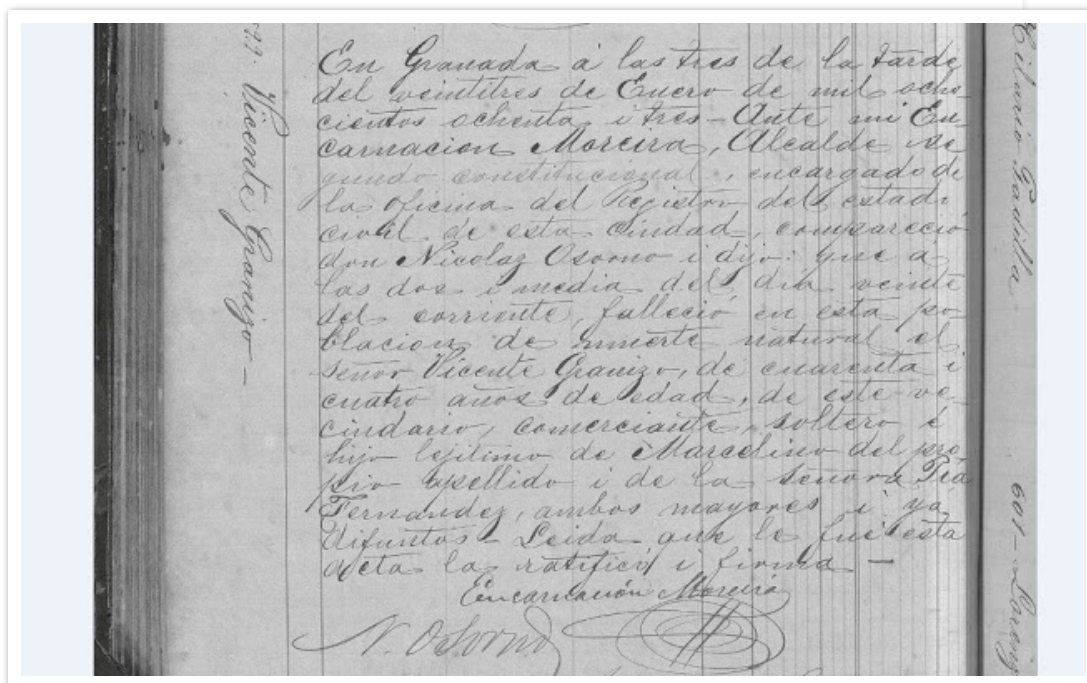 99. Vicente Granizo –
En Granada á las tres de la tarde
del veintitres de Enero de mil ocho
cientos ochenta i tres – Ante mi En-
carnacion Moreira, Alcalde se
gundo constitucional, encargado de
la oficina del Registro del estado
civil de esta ciudad, compareció
don Nicolaz Osorno i dijo: que a
las dos i media del dia veinte
del corriente, falleció en esta po-
blacion de muerte natural el
señor Vicente Granizo, de cuarenta i
cuatro años de edad, de este ve-
cindario, comerciante, soltero é
hijo lejitimo de Marcelino del pro-
pio apellido i de la señora Pia
Fernandez, ambos mayores i ya
difuntos – Leida que le fue esta
acta la ratificó i firma –
Encarnación Moreira
N. Osorno
Padilla
601 – Lorenz